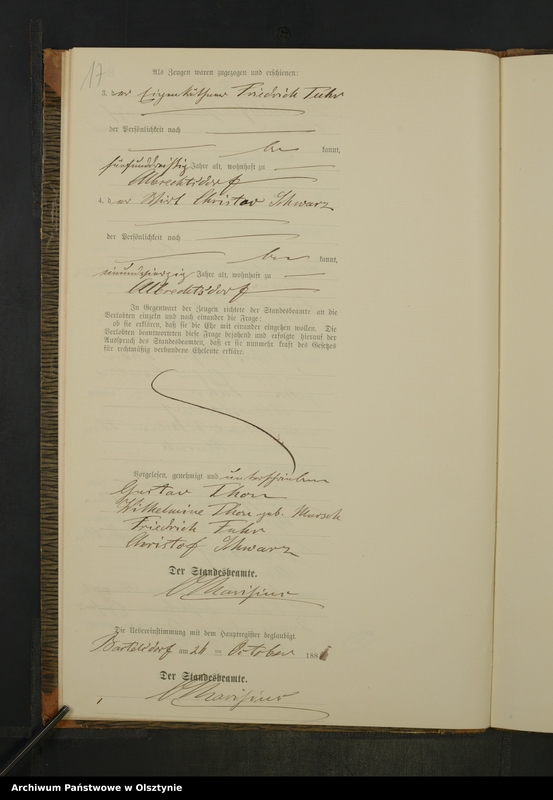 17
Als Zeugen waren zugezogen und erschienen:
3. der Eigenkäthner Friedrich Fuhr
der Persönlichkeit nach
be kannt,
fünfunddreißig Jahre alt, wohnhaft zu
Albrechtsdorf
4. der Wirt Christov Schwarz
der Persönlichkeit nach
be kannt,
einundvierzig Jahre alt, wohnhaft zu
Albrechtsdorf
In Gegenwart der Zeugen richtete der Standesbeamte an die
Verlobten einzeln und nach einander die Frage:
ob sie erklären, daß sie die Ehe mit einander eingehen wollen. Die
Verlobten beantworteten diese Frage bejahend und erfolgte hierauf der
Ausspruch des Standesbeamten, daß er sie nunmehr kraft des Gesetzes
für rechtmäßig verbundene Eheleute erkläre.
Vorgelesen, genehmigt und unterschrieben
Gustav Thon
Wilhelmine Thon geb.
Friedrich Fuhr
Christof Schwarz
Der Standesbeamte.
Die Uebereinstimmung mit dem Hauptregister beglaubigt.
Bartelsdorf am 26 ten October 188
Der Standesbeamte.
Archiwum Państwowe w Olsztynie